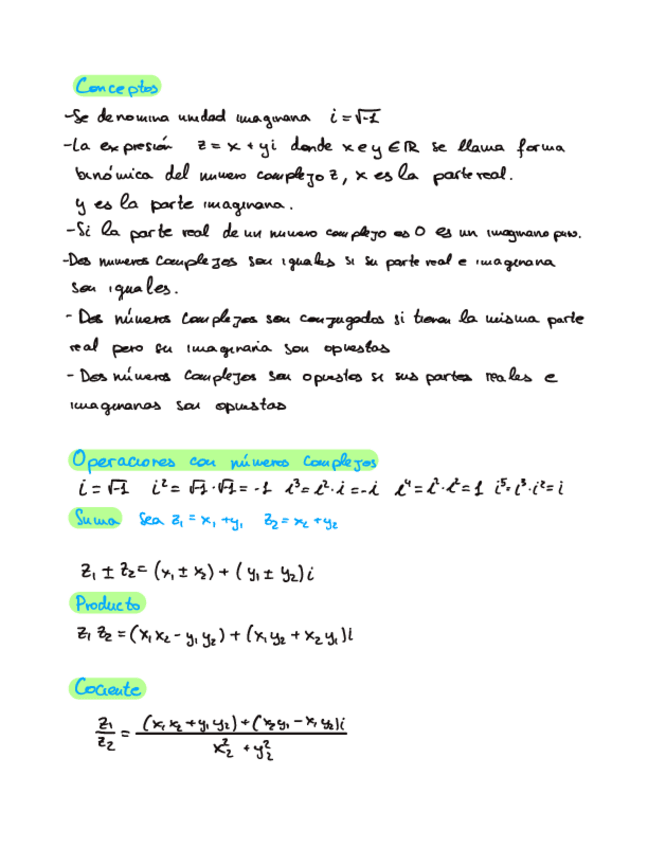 Conceptos
-Se denomina unidad imaginaria i = √-1
-La expresión z = x + yi donde x e y ∈ ℝ se llama forma
binómica del numero complejo z, x es la parte real.
y es la parte imaginaria.
-Si la parte real de un numero complejo es 0 es un imaginario puro.
-Dos numeros complejos son iguales si su parte real e imaginaria
son iguales.
- Dos números complejos son conjugados si tienen la misma parte
real pero su imaginaria son opuestas
- Dos números complejos son opuestos si sus partes reales e
imaginarias son opuestas
Operaciones con números complejos
i = √-1 i² = √-1 · √-1 = -1 i³ = i² · i = -i i⁴ = i² · i² = 1 i⁵ = i³ · i² = i
Suma Sea z₁ = x₁ + y₁ z₂ = x₂ + y₂
z₁ ± z₂ = (x₁ ± x₂) + (y₁ ± y₂)i
Producto
z₁ z₂ = (x₁x₂ - y₁y₂) + (x₁y₂ + x₂y₁)i
Cociente
z₁/z₂ = ((x₁x₂ + y₁y₂) + (x₂y₁ - x₁y₂)i)/(x₂² + y₂²)